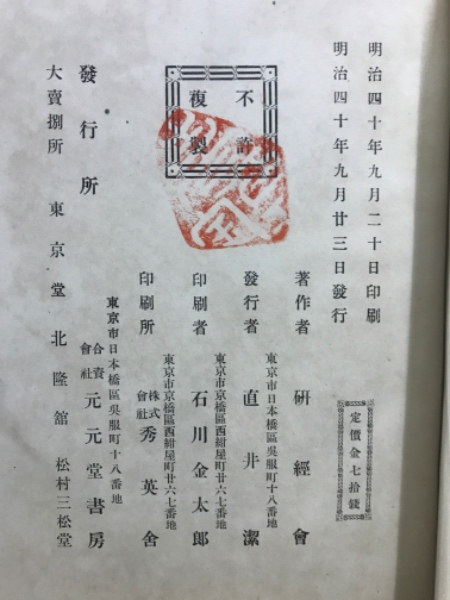 明治四十年九月二十日印刷
明治四十年九月廿三日發行
定價金七拾錢
不許
複製
著作者 硏經會
東京市日本橋區吳服町十八番地
發行者 直井潔
東京市京橋區西紺屋町廿六七番地
印刷者 石川金太郎
東京市京橋區西紺屋町廿六七番地
印刷所 株式會社 秀英舍
東京市日本橋區吳服町十八番地
發行所 合資會社 元元堂書房
大賣捌所 東京堂 北隆舘 松村三松堂